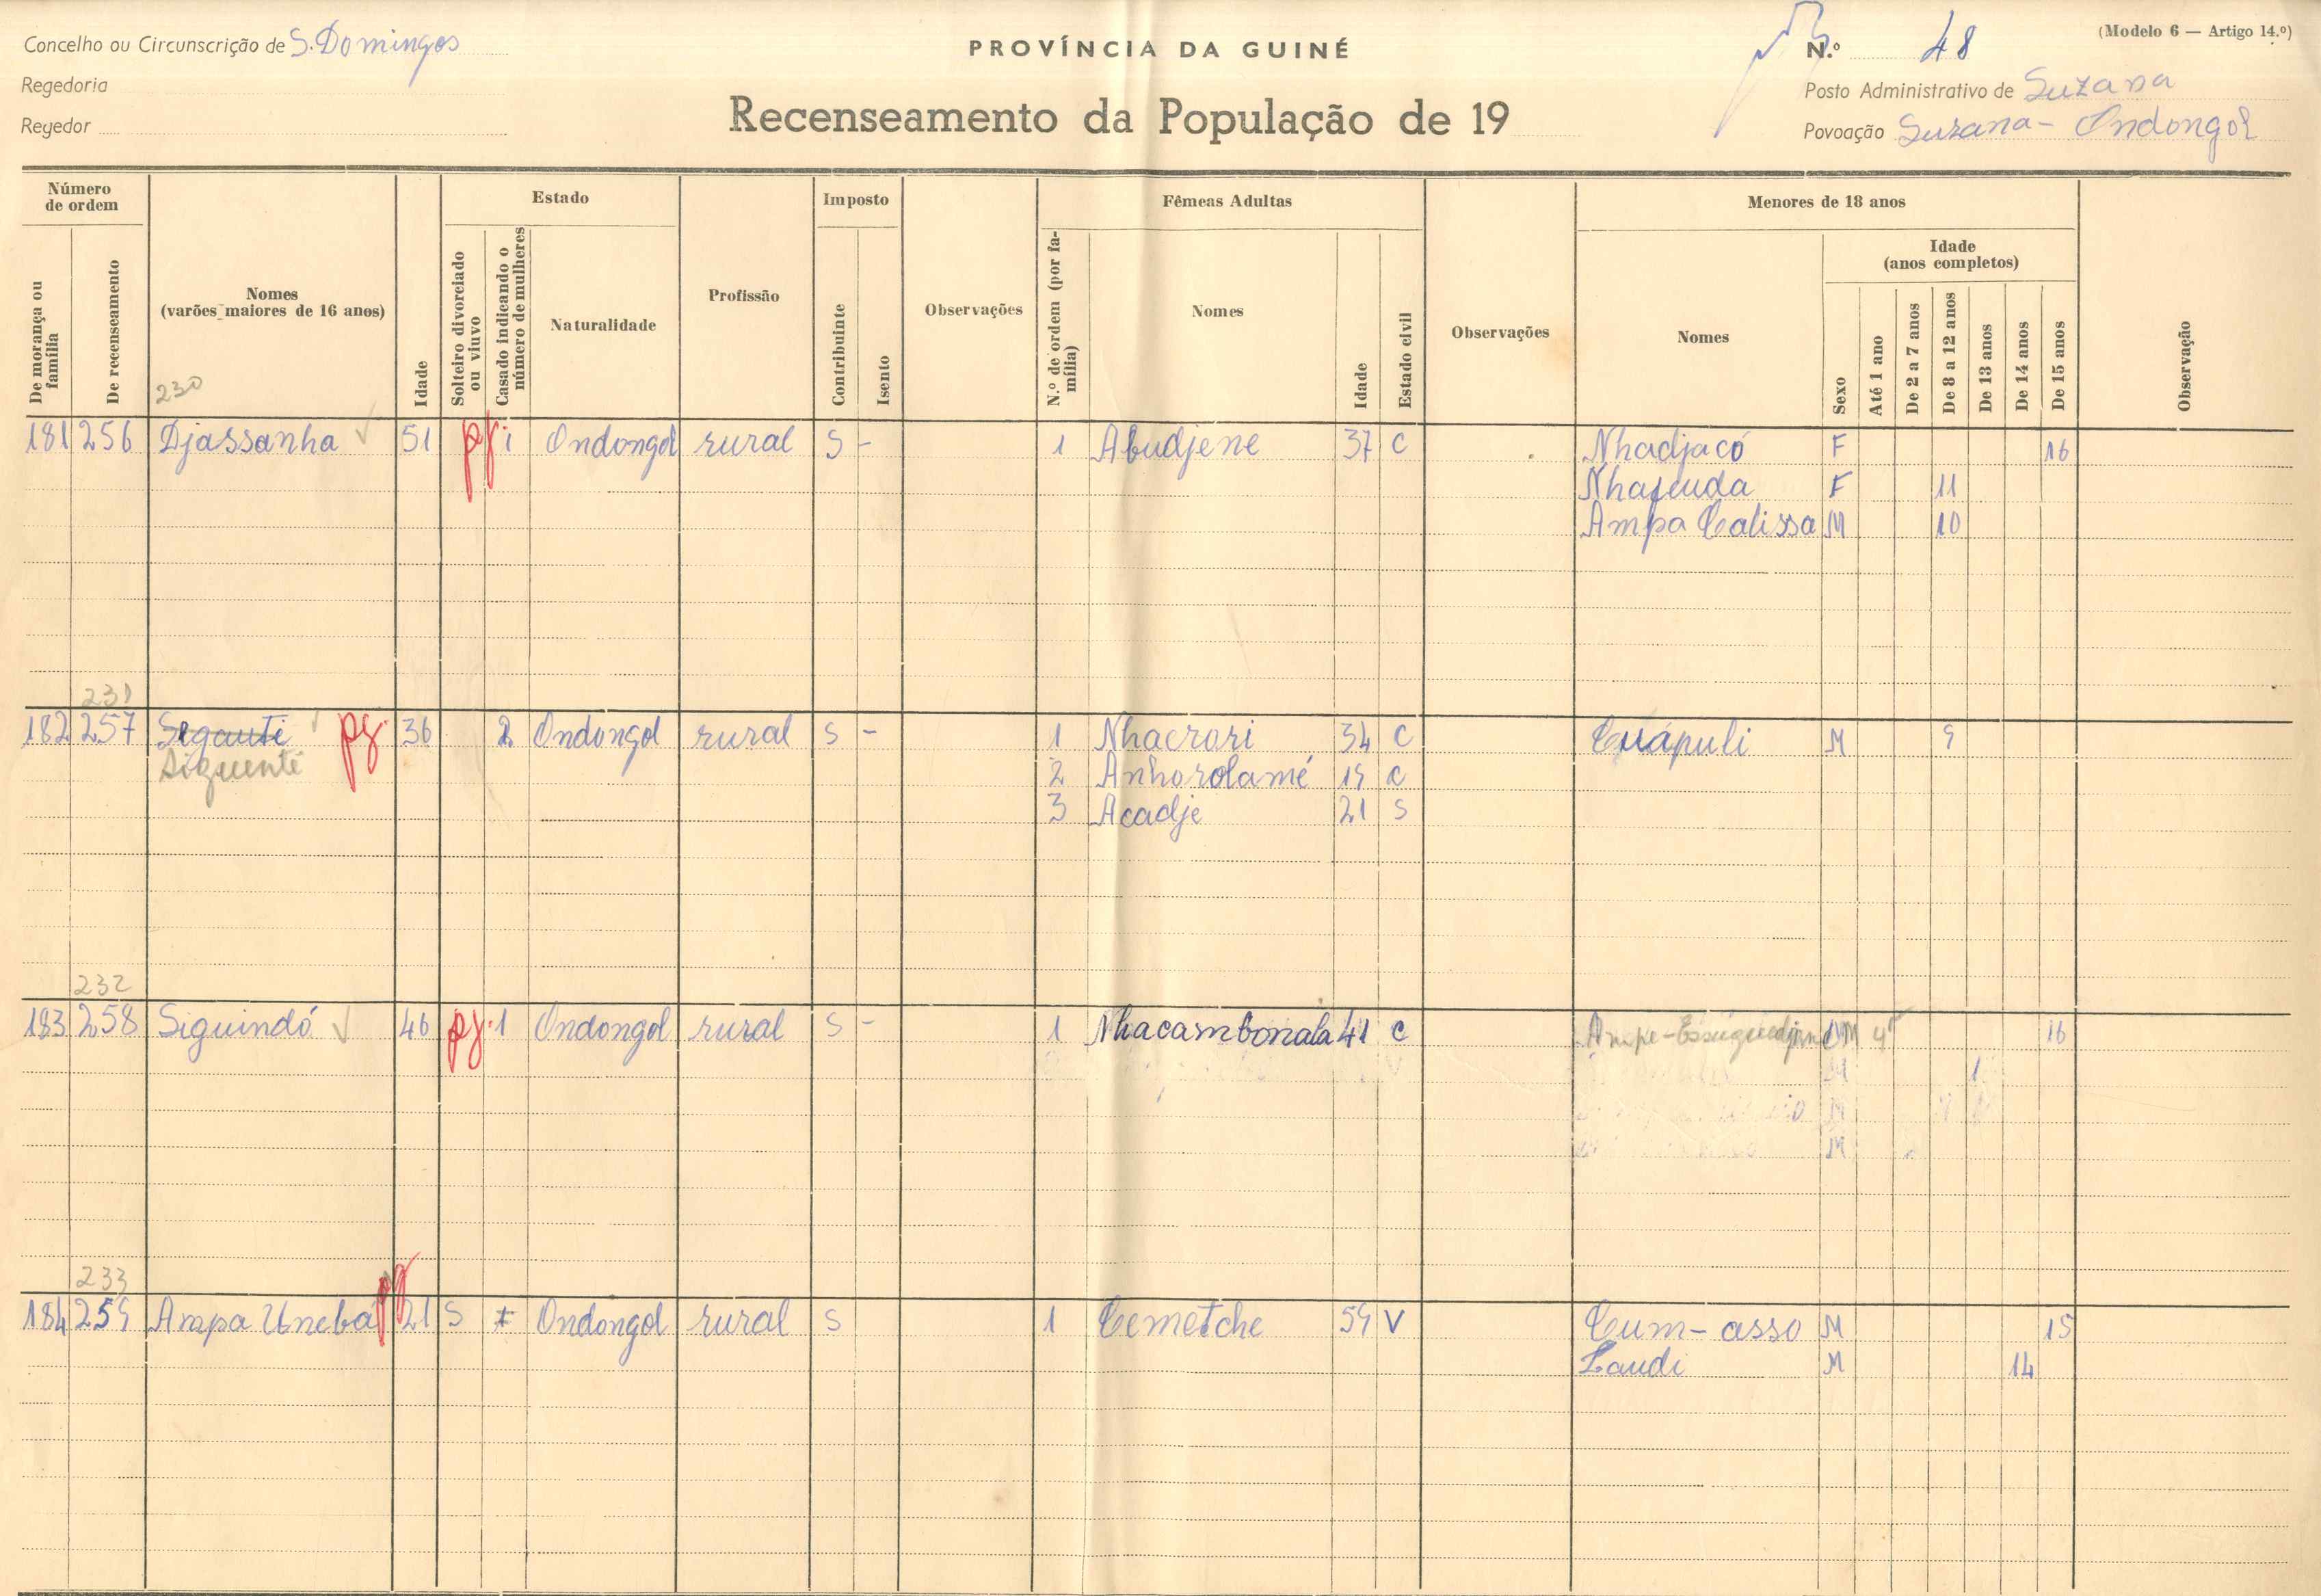 Concelho ou Circunscrição de S. Domingos
PROVÍNCIA DA GUINÉ
N.º 48
(Modelo 6 — Artigo 14.º)
Regedoria
Posto Administrativo de Suzana
Regedor
Recenseamento da População de 19
Povoação Suzana - Ondongol
Número de ordem
Estado
Imposto
Fêmeas Adultas
Menores de 18 anos
De morança ou família
De recenseamento
Nomes (varões maiores de 16 anos)
Idade
Solteiro divorciado ou viuvo
Casado indicando o número de mulheres
Naturalidade
Profissão
Contribuinte
Isento
Observações
N.º de ordem (por família)
Nomes
Idade
Estado civil
Observações
Nomes
Sexo
Idade (anos completos)
Até 1 ano
De 2 a 7 anos
De 8 a 12 anos
De 13 anos
De 14 anos
De 15 anos
Observação
230
181 256 Djassanha 51 pg. 1 Ondongol rural S - 1 Abudjene 37 C Nhadjacó F 16
F 11
Ampa Calissa M 10
231
182 257 Segauti pg. 36 2 Ondongol rural S - 1 Nhacrori 34 C Cuápuli M 9
Siguenté 2 Anhorolamé 19 C
3 Acadje 21 S
232
183 258 Siguindó 46 pg. 1 Ondongol rural S - 1 Nhacambonala 41 C M 16
M
M
M
233
184 259 Ampa Uneba pg 21 S Ondongol rural S 1 Cemetche 59 V Cum-asso M 15
Laudi M 14